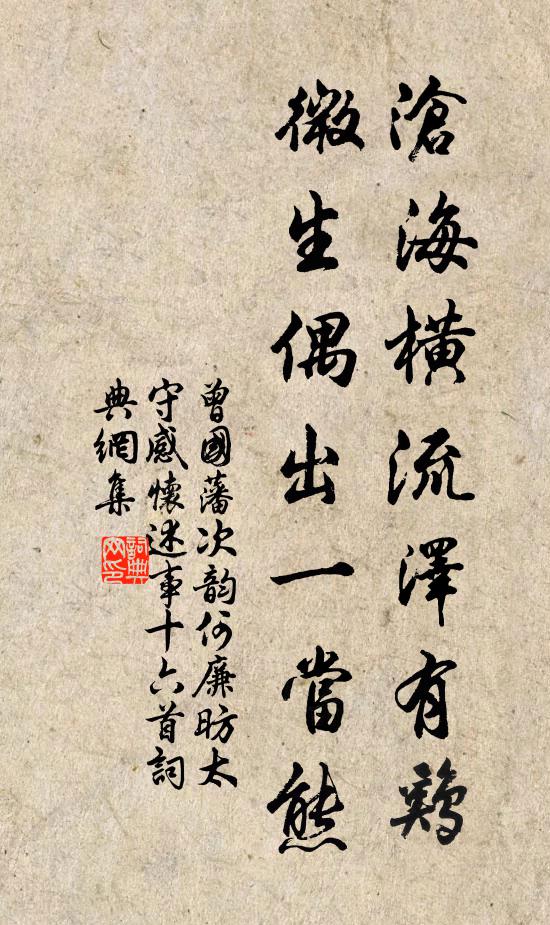 滄海橫流澤有鷄
微生偶出一當熊
曾國藩次韵何廉昉太
守感懷述事十六首詞
典網集
詞典
网印